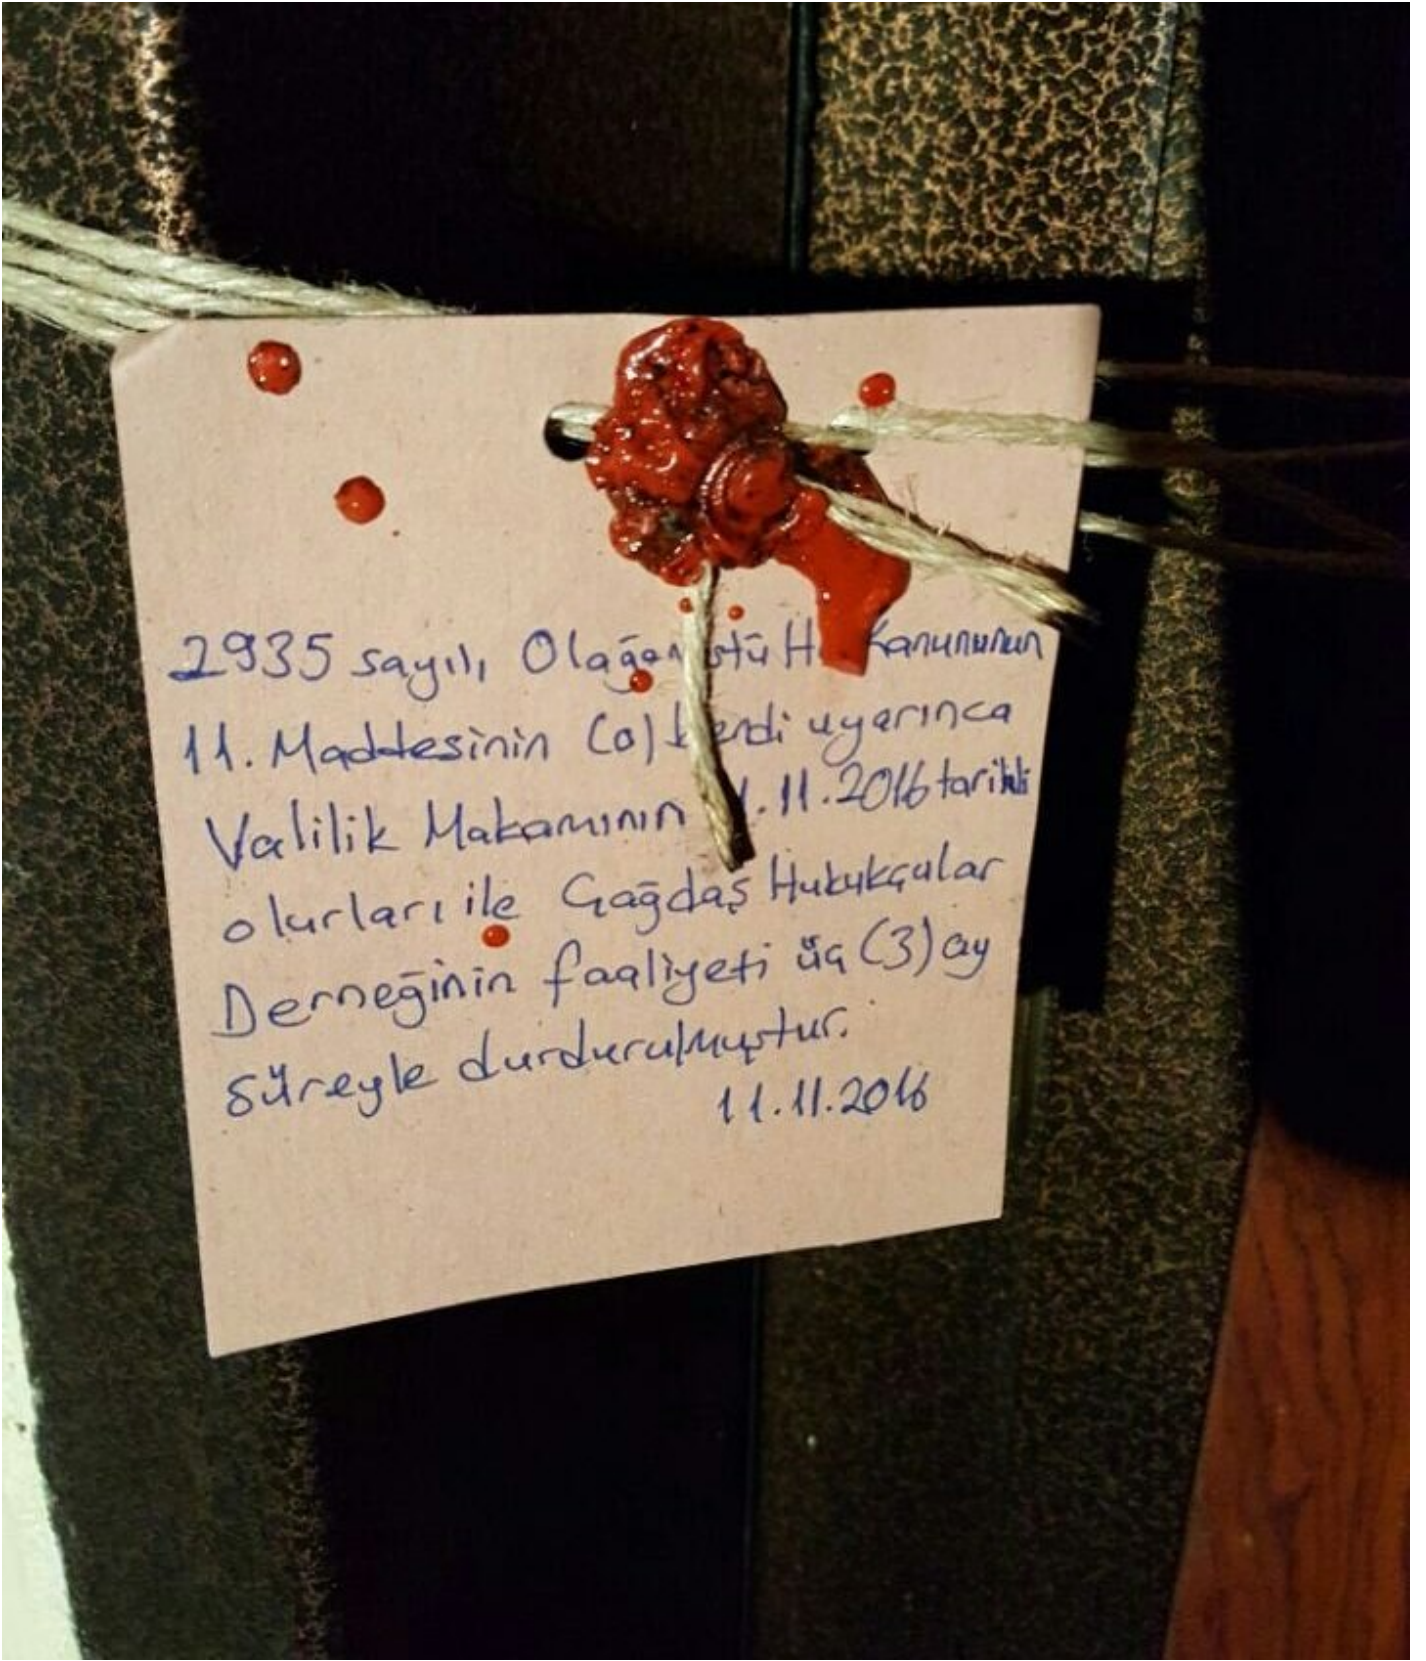 2935 sayılı, Olağanüstü H. Kanununun
11. Maddesinin (o) bendi uyarınca
Valilik Makamının 11.11.2016 tarihli
olurları ile Çağdaş Hukukçular
Derneğinin faaliyeti üç (3) ay
süreyle durdurulmuştur.
11.11.2016